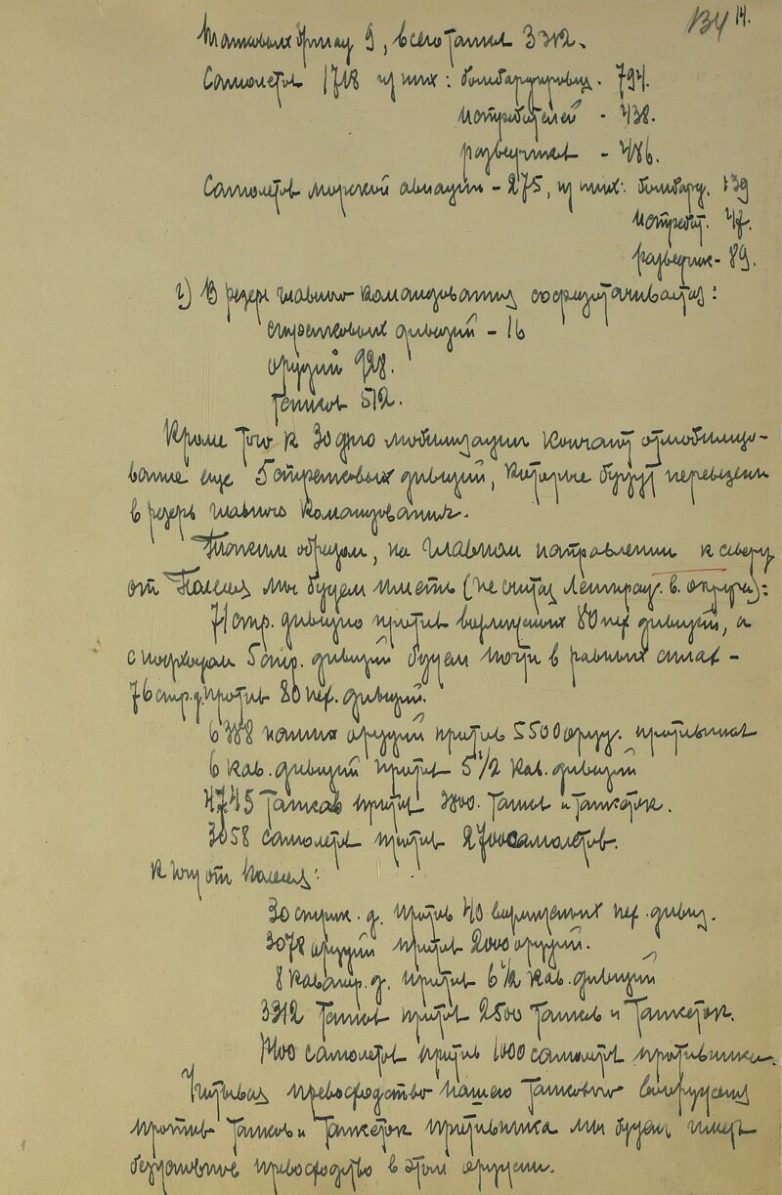 134 14.
Танковых бригад 9, всего танков 3312.
Самолетов 1718 из них: бомбардировщ. - 794.
истребителей - 438.
разведчиков - 486.
Самолетов морской авиации - 275, из них: бомбард. 139
истребит. 47.
разведчик - 89.
г) В резерв главного командования сосредотачивается:
стрелковых дивизий - 16
орудий 928.
танков 512.
Кроме того к 30 дню мобилизации кончают отмобилизо-
вание еще 5 стрелковых дивизий, которые будут перевезены
в резерв главного командования.
Таким образом, на главном направлении к северу
от Полесья мы будем иметь (не считая Ленинград. в. округа):
71 стр. дивизию против вариантных 80 пех. дивизий, а
с подходом 5 стр. дивизий будем почти в равных силах -
76 стр. д. против 80 пех. дивизий.
наших орудий против 5500 оруд. противника
6 кав. дивизий против 5 1/2 кав. дивизий
4745 танков против танков и танкеток.
3058 самолетов против 2700 самолетов.
К югу от Полесья:
30 стрелк. д. против 40 вариантных пех. дивиз.
3078 орудий против 2000 орудий.
8 кав. д. против 6 1/2 кав. дивизий
3312 танков против 2500 танков и танкеток.
самолетов против 1000 самолетов противника.
Учитывая превосходство нашего танкового вооружения
против танков и танкеток противника мы будем иметь
безусловное превосходство в этом оружии.